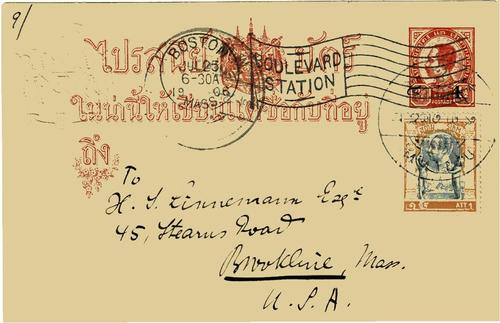 9/
ไปรสนีย์บัตร์
BOSTON
JUL 23
6-30A
MASS.
BOULEVARD
STATION
ในน่านี้ให้เขียนแต่ชื่อกับที่อยู่
ถึง
ATT. 1
To
H. S. Linnemann Esqr
45, Stearns Road
Brookline, Mass.
U. S. A.